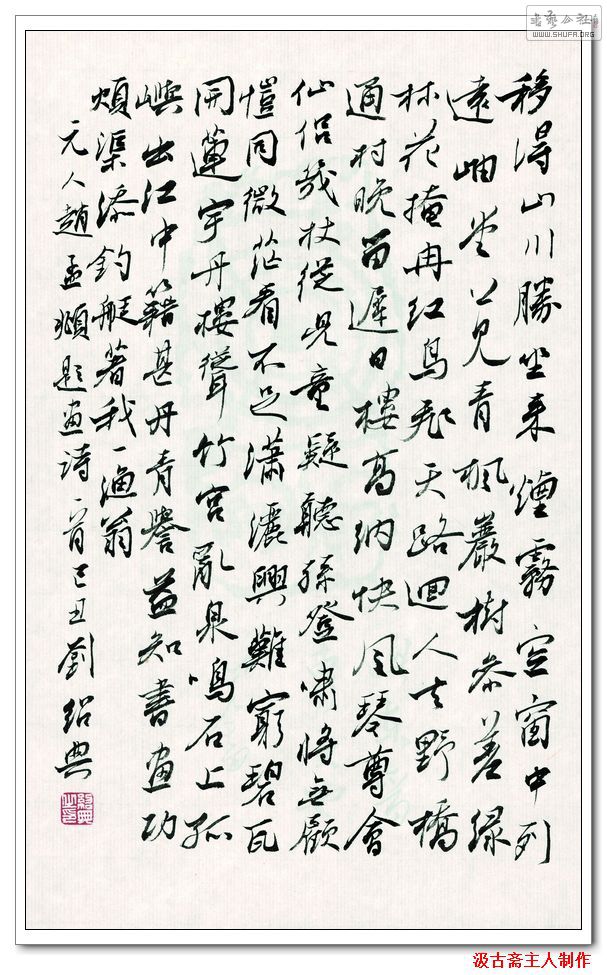 書藝公社
WWW.SHUFA.ORG
移得山川勝坐来煙霧空窗中列
遠岫堂上見青楓巖樹参差緑
林花掩冉红鳥飛天路迴人去野橋
通村晚留遲日樓高納快風琴尊會
仙侣幾杖從児童疑聽孫登嘯将无顧
愷同微茫看不足瀟灑興難窮碧瓦
開蓮宇丹樓聳竹宮亂泉鳴石上孤
嶼出江中籍甚丹青譽益知書畫功
煩渠添釣艇著我一漁翁
元人趙孟頫題畫詩一首己丑劉紹典
汲古斋主人制作